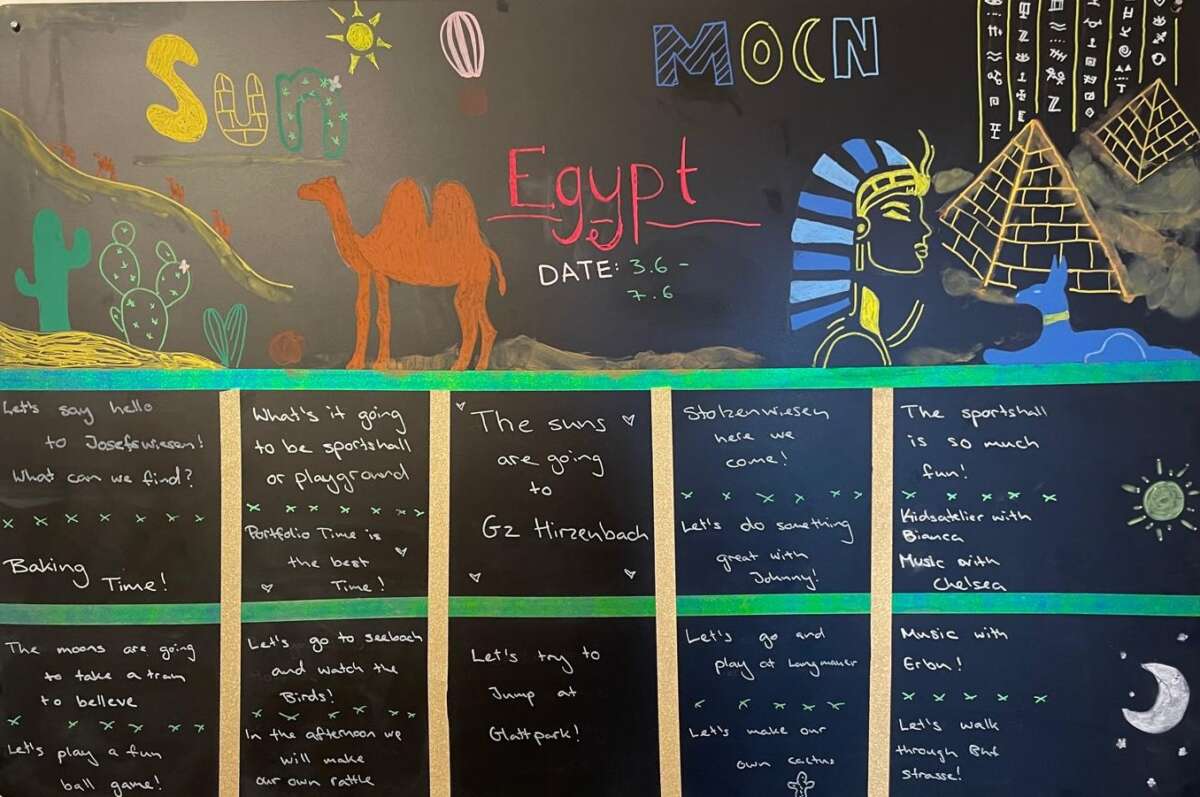 Sun
MOON
Egypt
DATE: 3.6 -
7.6
Let's say hello
to Josefswiesen!
What can we find?
Baking
Time!
What's it going
to be sportshall
or playground
Portfolio Time is
the best
Time!
The suns
are going
to
GZ Hirzenbach
Stolzenwiesen
here we
come!
Let's do something
great with
Johnny!
The sportshall
is so much
fun!
Kidsatelier with
Bianca
Music with
Chelsea
The moons are going
to take a tram
to belleve
Let's play a fun
ball game!
Let's go to seebach
and watch the
Birds!
In the afternoon we
will make
our own rattle
Let's try to
Jump at
Glattpark!
Let's go and
play at
Let's make our
own cactus
Music with
Let's walk
through Bhf
strasse!